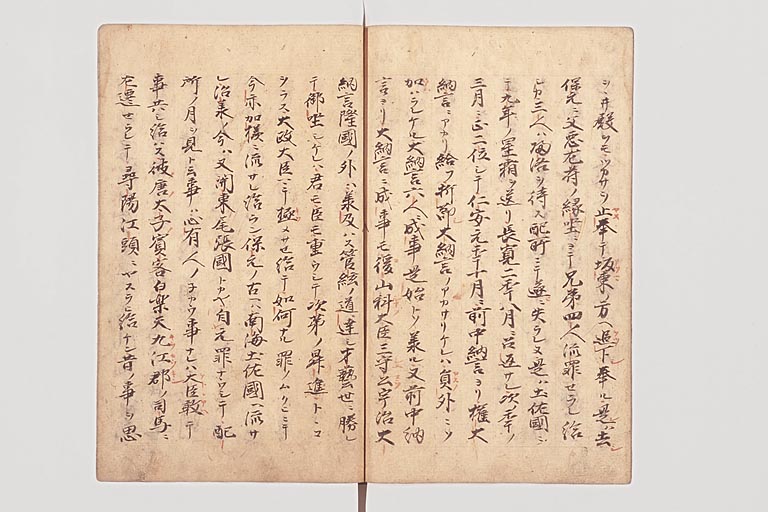 シ井殿シモツカサシ止奉テ坂東ノ方ヘ追下奉ル是ハ去
保元ニ父悪左府ノ縁坐ニヨテ兄弟四人流罪せラレ給
シカ三人ハ帰洛ヲ待ス配所ニテ無ニ失ラレヌ是ハ土佐國ニ
テ九年ノ星霜ヲ送リ長寛二年八月ニ召返サレ次年ノ
三月ニ正二位シテ仁安元年十月ニ前中納言ヨリ権大
納言ニアカリ給フ折節大納言ノアカサリケレハ員外ニソ
加ハラレケル大納言六人成事是始トソ美ル又前中納
言ヨリ大納言ニ成事モ後山科大臣三守公宇治大
納言隆國ノ外ハ美及ハス管絃ノ道ニ達シ才藝世ニ勝レ
テ御坐シケレハ君モ臣モ重ウシテ次第ノ昇進トトコ
シラス大政大臣ニテ極メサせ給テ如何ナル罪ノムクニテ
今亦加様ニ流サレ給ラン保元ノ古ハ南海土佐國ヘ流サ
レ治美ノ今ハ又開東尾張國トカヤ自元罪ナウシテ配
所ノ月ヲ見ト云事ハ心有人ノネカウ事ナレハ大臣敢テ
事共シ給ハス彼唐太子賓客白楽天九江郡ノ司馬ニ
左遷せラレテ尋陽江頭ニヤスライ給ケン昔ノ事ヲ思